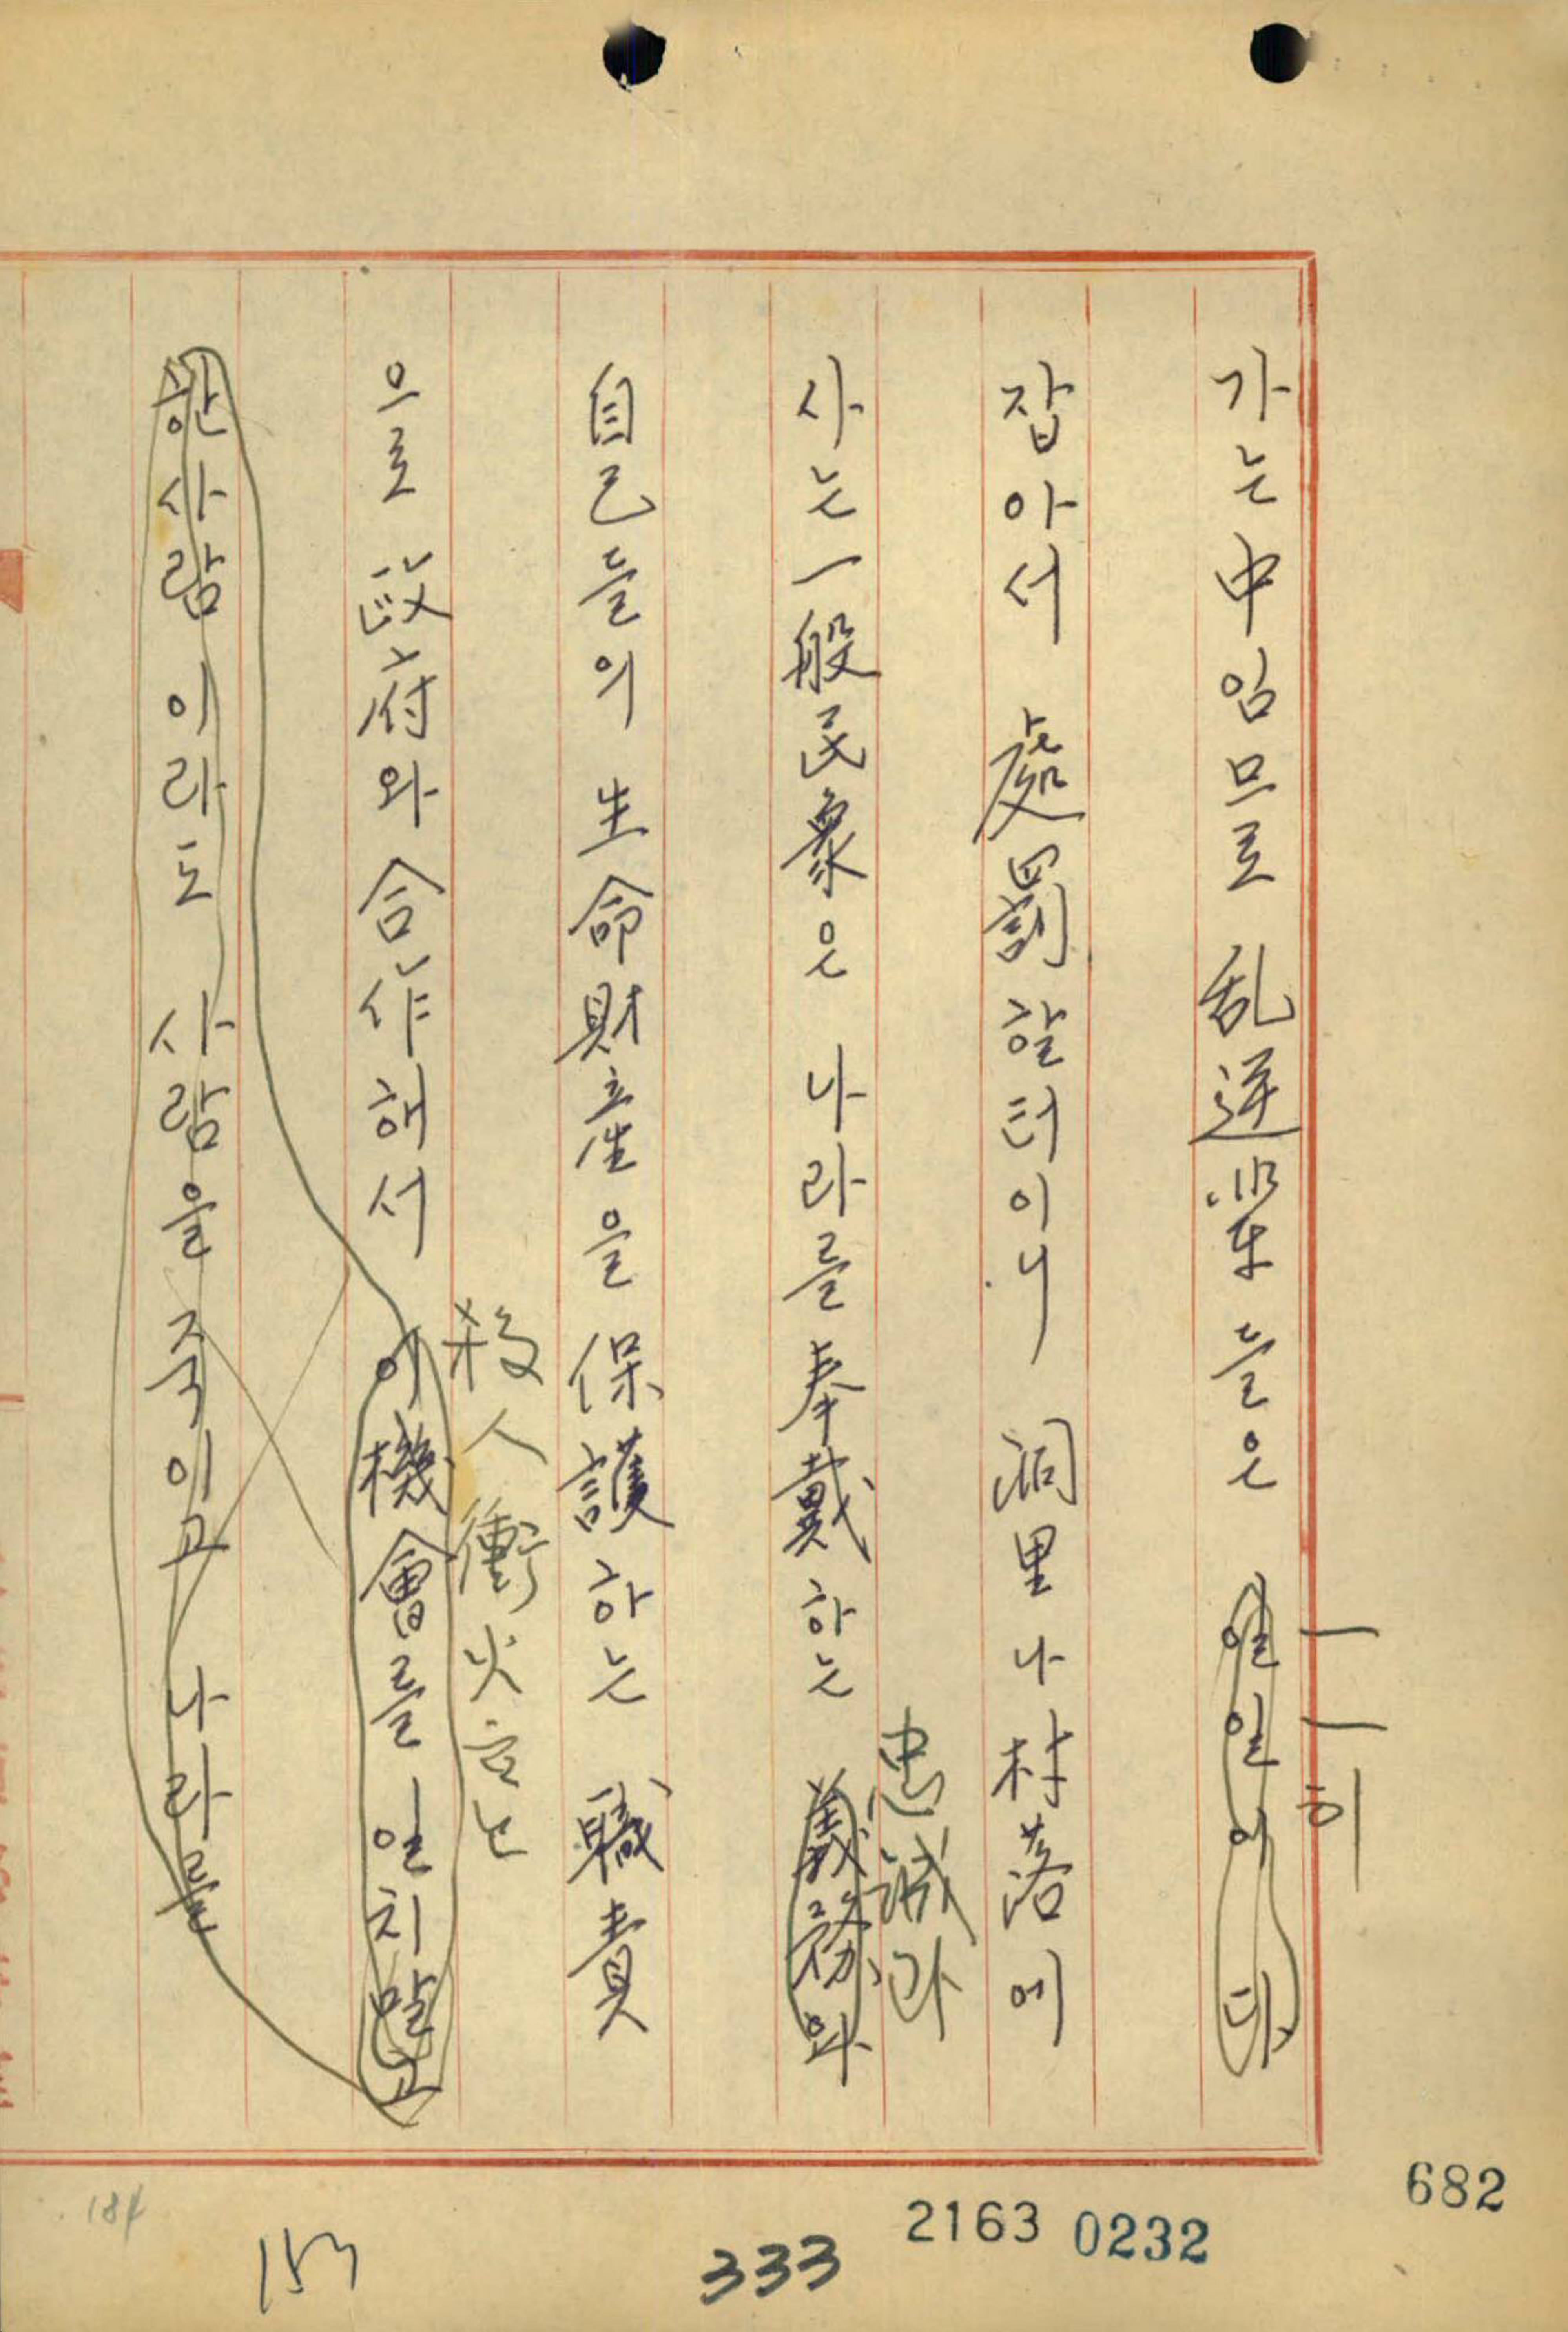 가는中임므로 乱逆輩들은 일일이다
一一히
잡아서 處罰할터이니 洞里나村落에
忠誠과
사는一般民衆은 나라를奉戴하는 義務와
自己들의 生命財産을 保護하는 職責
殺人衝火하는
으로 政府와合作해서 이機會를일치말고
한사람이라도 사람을죽이고 나라를
682
2163 0232
333
153
184